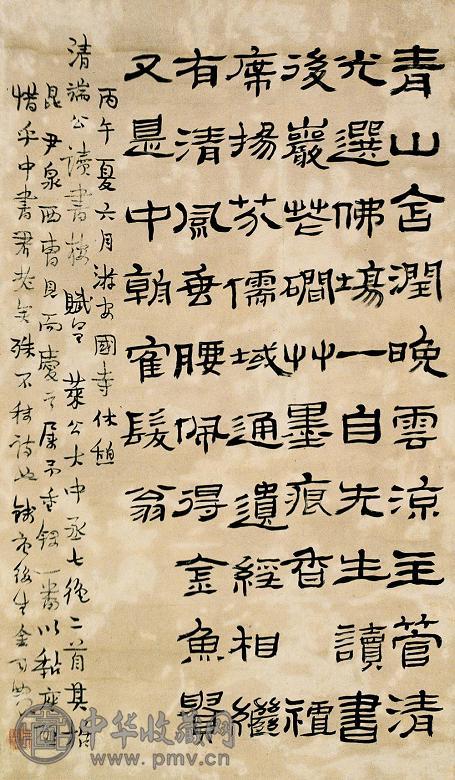 青山含潤晚雲涼主管清
光選佛場一自先生讀書
後巖花磵艸墨痕香禪
席揚芬儒域通遺經相繼
有清風垂腰佩得金魚
又是中朝隺髮翁
丙午夏六月游安國寺休憩
清端公讀書樓賦呈 萊公大中丞七絕二首其
昆尹泉西曹見而慶之屬 一番以黏座
惜乎中書君老矣殊不稱詩也錢唐後生金
中华收藏网
www.pmv.cn